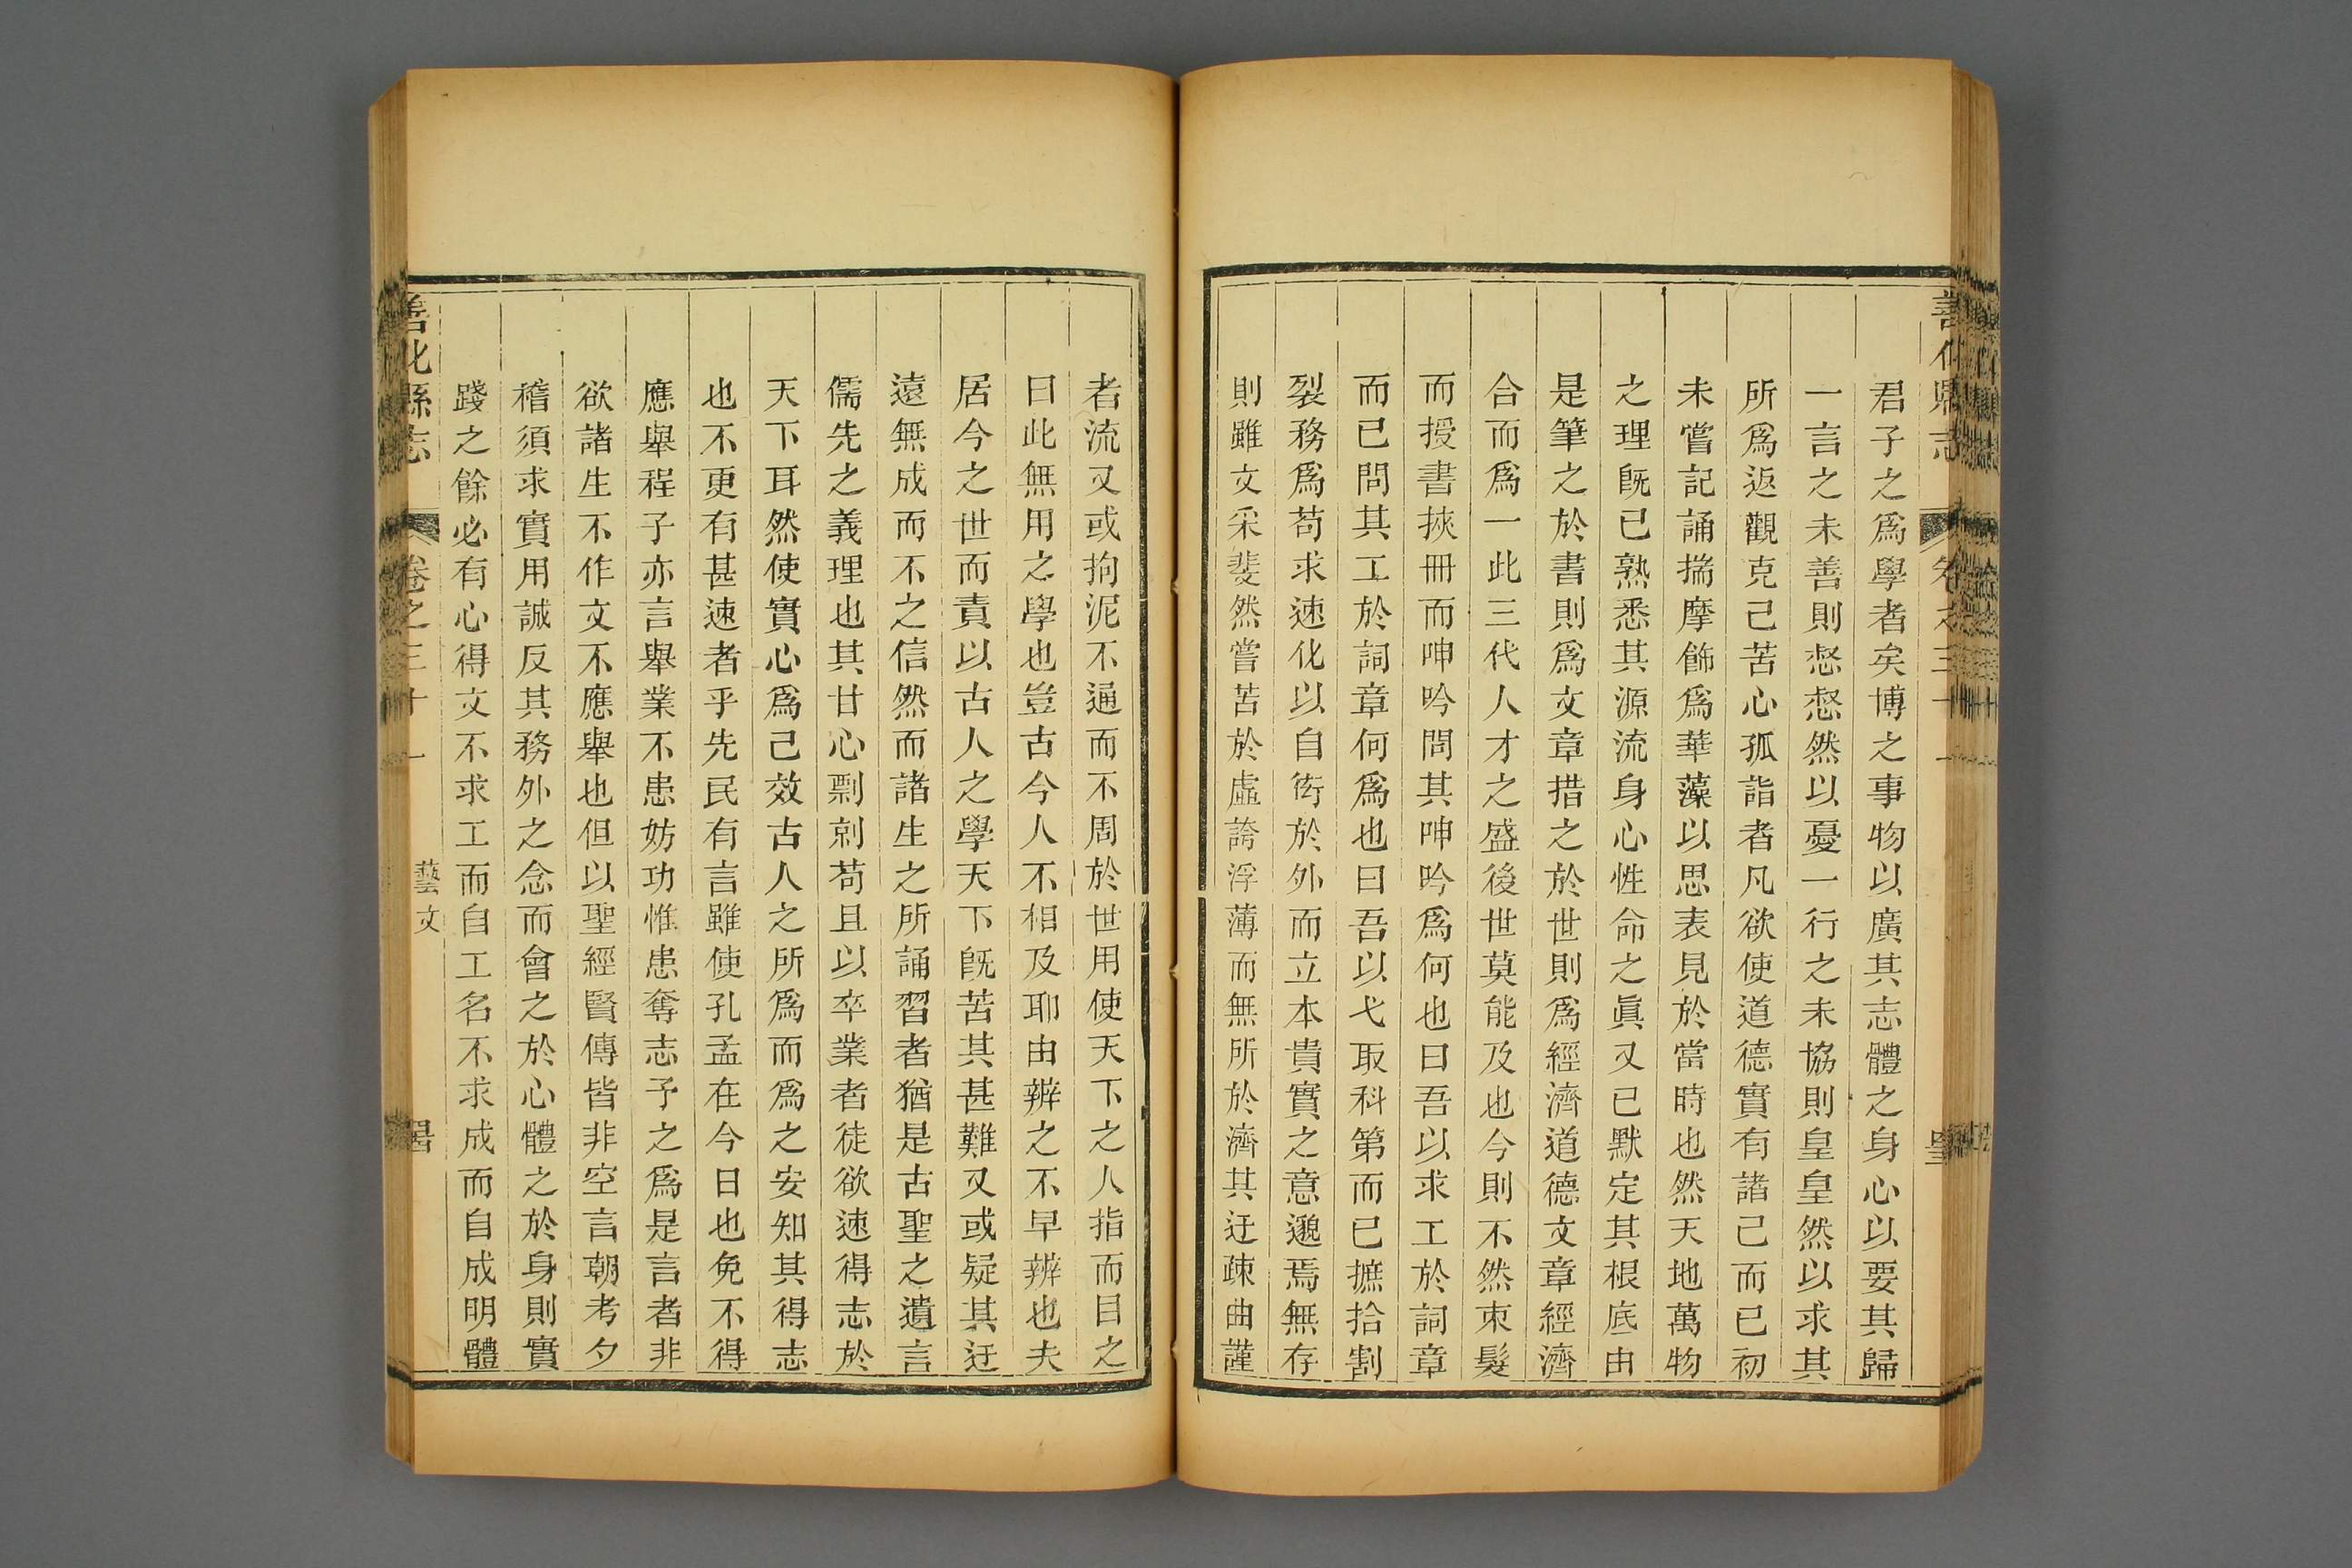 善化縣志
卷之三十一
君子之爲學者矣博之事物以廣其志體之身心以要其歸
一言之未善則惄惄然以憂一行之未協則皇皇然以求其
所爲返觀克己苦心孤詣者凡欲使道德實有諸己而已初
未嘗記誦揣摩飾爲華藻以思表見於當時也然天地萬物
之理旣已熟悉其源流身心性命之眞又已默定其根底由
是筆之於書則爲文章措之於世則爲經濟道德文章經濟
合而爲一此三代人才之盛後世莫能及也今則不然束髮
而授書挾冊而呻吟問其呻吟爲何也曰吾以求工於詞章
而已問其工於詞章何爲也曰吾以弋取科第而已摭拾割
裂務爲苟求速化以自衒於外而立本貴實之意邈焉無存
則雖文采斐然嘗苦於虛誇浮薄而無所於濟其迂疎曲謹
者流又或拘泥不通而不周於世用使天下之人指而目之
曰此無用之學也豈古今人不相及耶由辨之不早辨也夫
居今之世而責以古人之學天下旣苦其甚難又或疑其迂
遠無成而不之信然而諸生之所誦習者猶是古聖之遺言
儒先之義理也其甘心剽剠苟且以卒業者徒欲速得志於
天下耳然使實心爲己效古人之所爲而爲之安知其得志
也不更有甚速者乎先民有言雖使孔孟在今日也免不得
應舉程子亦言舉業不患妨功惟患奪志予之爲是言者非
欲諸生不作文不應舉也但以聖經賢傳皆非空言朝考夕
稽須求實用誠反其務外之念而會之於心體之於身則實
踐之餘必有心得文不求工而自工名不求成而自成明體
善化縣志
卷之三十一
藝文